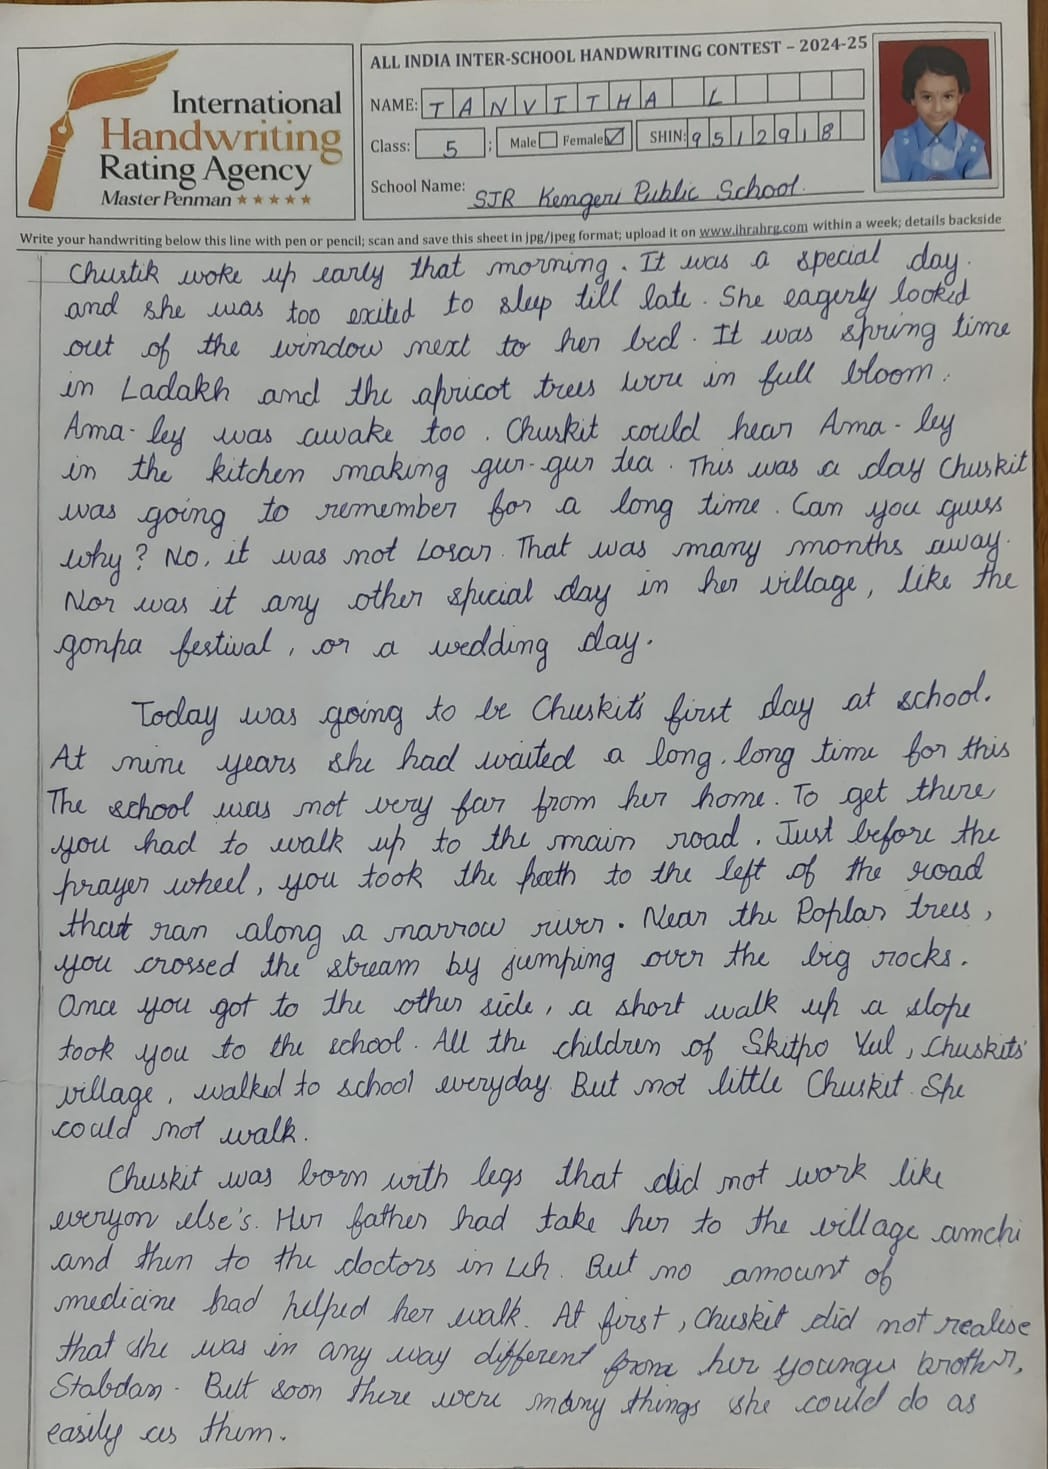 International
Handwriting
Rating Agency
Master Penman ★★★★★
ALL INDIA INTER-SCHOOL HANDWRITING CONTEST – 2024-25
NAME: TANVITHA L
Class: 5 ; Male☐ Female☑ SHIN: 9512918
School Name: SJR Kengeri Public School.
Write your handwriting below this line with pen or pencil; scan and save this sheet in jpg/jpeg format; upload it on www.ihrahrg.com within a week; details backside
Chustik woke up early that morning. It was a special day.
and she was too exited to sleep till late. She eagerly looked
out of the window next to her bed. It was spring time
in Ladakh and the apricot trees were in full bloom.
Ama-ley was awake too. Chuskit could hear Ama-ley
in the kitchen making gur-gur tea. This was a day Chuskit
was going to remember for a long time. Can you guess
why? No, it was not Losar. That was many months away.
Nor was it any other special day in her village, like the
gonpa festival, or a wedding day.
Today was going to be Chuskit's first day at school.
At nine years she had waited a long, long time for this
The school was not very far from her home. To get there
you had to walk up to the main road. Just before the
prayer wheel, you took the path to the left of the road
that ran along a narrow river. Near the Poplar trees,
you crossed the stream by jumping over the big rocks.
Once you got to the other side, a short walk up a slope
took you to the school. All the children of Skitpo Yul, Chuskits'
village, walked to school everyday. But not little Chuskit. She
could not walk.
Chuskit was born with legs that did not work like
everyon else's. Her father had take her to the village amchi
and then to the doctors in Leh. But no amount of
medicine had helped her walk. At first, Chuskit did not realise
that she was in any way different from her younger brother,
Stabdan. But soon there were many things she could do as
easily as them.